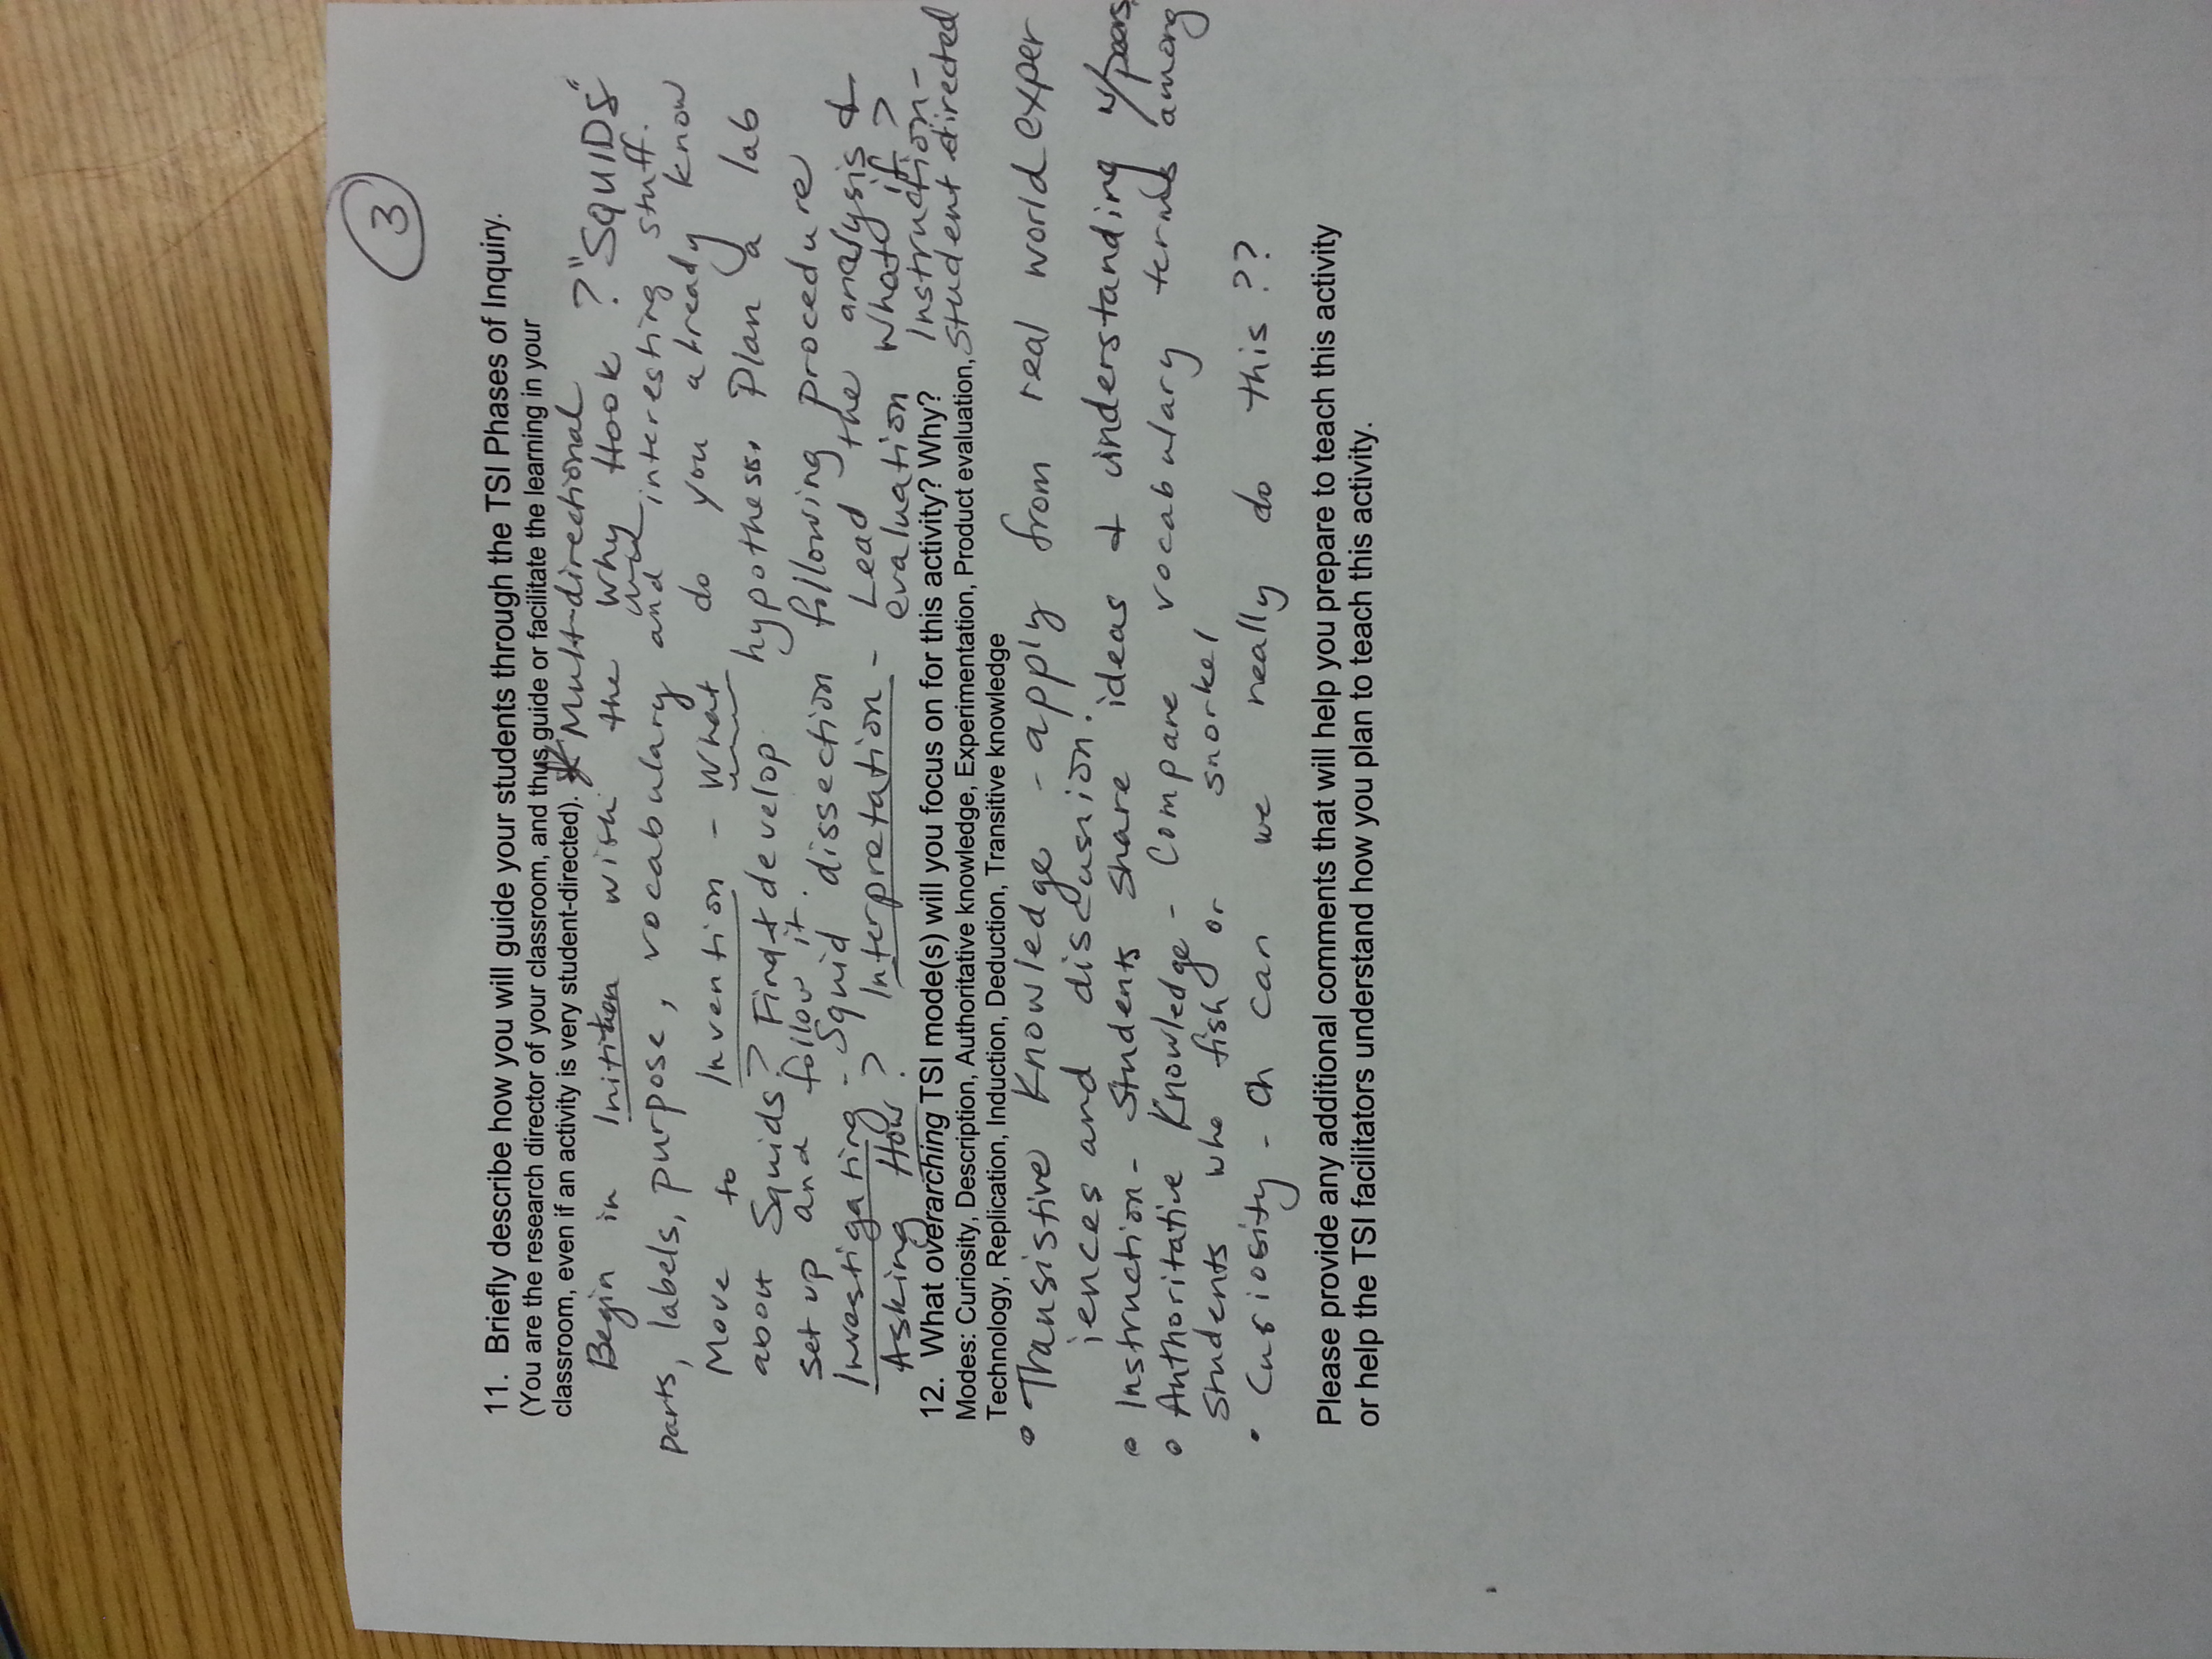 3
11. Briefly describe how you will guide your students through the TSI Phases of Inquiry.
(You are the research director of your classroom, and thus guide or facilitate the learning in your
classroom, even if an activity is very student-directed). * Mult-directional
Begin in Initition with the Why Hook ? "SQUIDS"
parts, labels, purpose, vocabulary and interesting stuff.
Move to Invention - What do you already know
about Squids? Find + develop hypothess. Plan a lab
set up and follow it.
Investigating - Squid dissection following procedure
Asking How? Interpretation - Lead the analysis &
evaluation What if?
12. What overarching TSI mode(s) will you focus on for this activity? Why? Instruction-
Modes: Curiosity, Description, Authoritative knowledge, Experimentation, Product evaluation, Student directed
Technology, Replication, Induction, Deduction, Transitive knowledge
• Transistive Knowledge - apply from real world exper
iences and discusion.
• Instruction - Students share ideas + understanding w/peers.
• Authoritative Knowledge - Compare vocabulary terms among
Students who fish or snorkel
• Curiosity - Oh can we really do this ??
Please provide any additional comments that will help you prepare to teach this activity
or help the TSI facilitators understand how you plan to teach this activity.